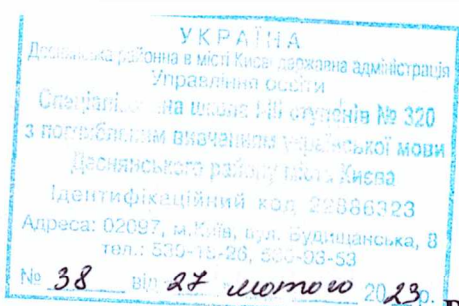 УКРАЇНА
Деснянська районна в місті Києві державна адміністрація
Управління освіти
Спеціалізована школа І-ІІІ ступенів № 320
з поглибленим вивченням української мови
Деснянського району міста Києва
Ідентифікаційний код 22886323
Адреса: 02097, м.Київ, вул. Будищанська, 8
тел.: 530-15-26, 530-93-53
№ 38 від 27 лютого 2023р.